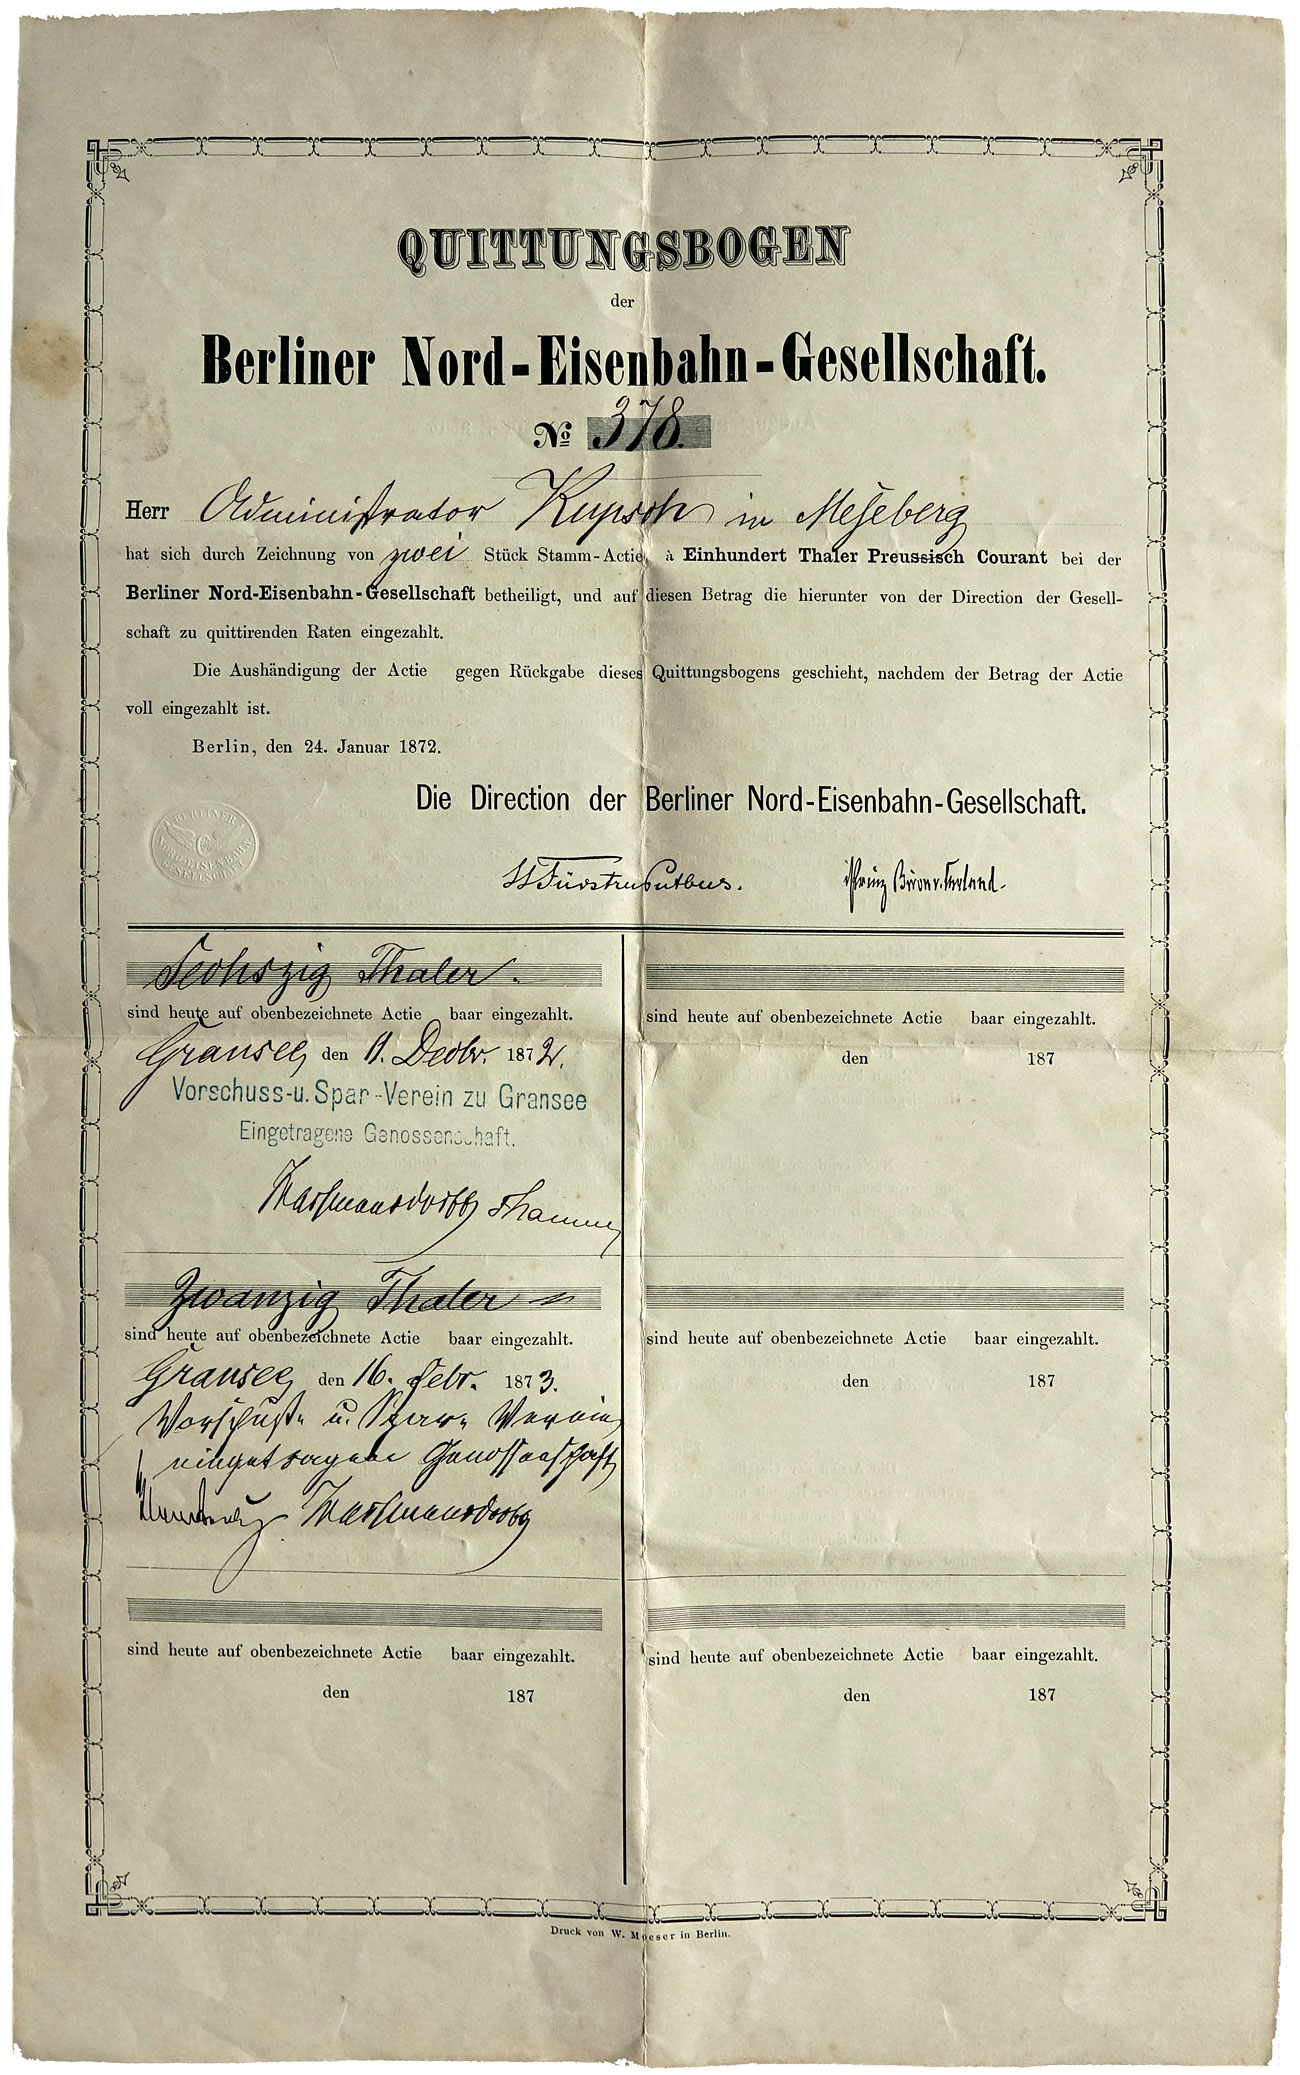 QUITTUNGSBOGEN
der
Berliner Nord-Eisenbahn-Gesellschaft.
No 378.
Herr Administrator Kupsch in Meseberg
hat sich durch Zeichnung von zwei Stück Stamm-Actie à Einhundert Thaler Preussisch Courant bei der
Berliner Nord-Eisenbahn-Gesellschaft betheiligt, und auf diesen Betrag die hierunter von der Direction der Gesell-
schaft zu quittirenden Raten eingezahlt.
Die Aushändigung der Actie gegen Rückgabe dieses Quittungsbogens geschieht, nachdem der Betrag der Actie
voll eingezahlt ist.
Berlin, den 24. Januar 1872.
Die Direction der Berliner Nord-Eisenbahn-Gesellschaft.
BERLINER
NORD-EISENBAHN
GESELLSCHAFT
Fürst zu Putbus. Prinz Biron v. Curland.
Sechszig Thaler
sind heute auf obenbezeichnete Actie baar eingezahlt.
Gransee, den 11. Decbr. 1872.
Vorschuss-u. Spar-Verein zu Gransee
Eingetragene Genossenschaft.
Zwanzig Thaler
sind heute auf obenbezeichnete Actie baar eingezahlt.
Gransee, den 16. Febr. 1873.
Vorschuß- u. Spar- Verein
eingetragene Genossenschaft
sind heute auf obenbezeichnete Actie baar eingezahlt.
den 187
sind heute auf obenbezeichnete Actie baar eingezahlt.
den 187
sind heute auf obenbezeichnete Actie baar eingezahlt.
den 187
sind heute auf obenbezeichnete Actie baar eingezahlt.
den 187
Druck von W. Moeser in Berlin.